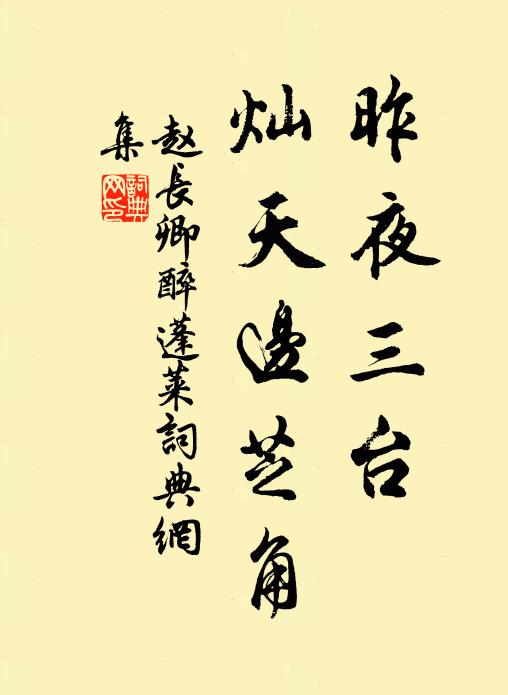 昨夜三台
灿天邊芝角
赵長卿醉蓬萊詞典網
集
詞典
网印